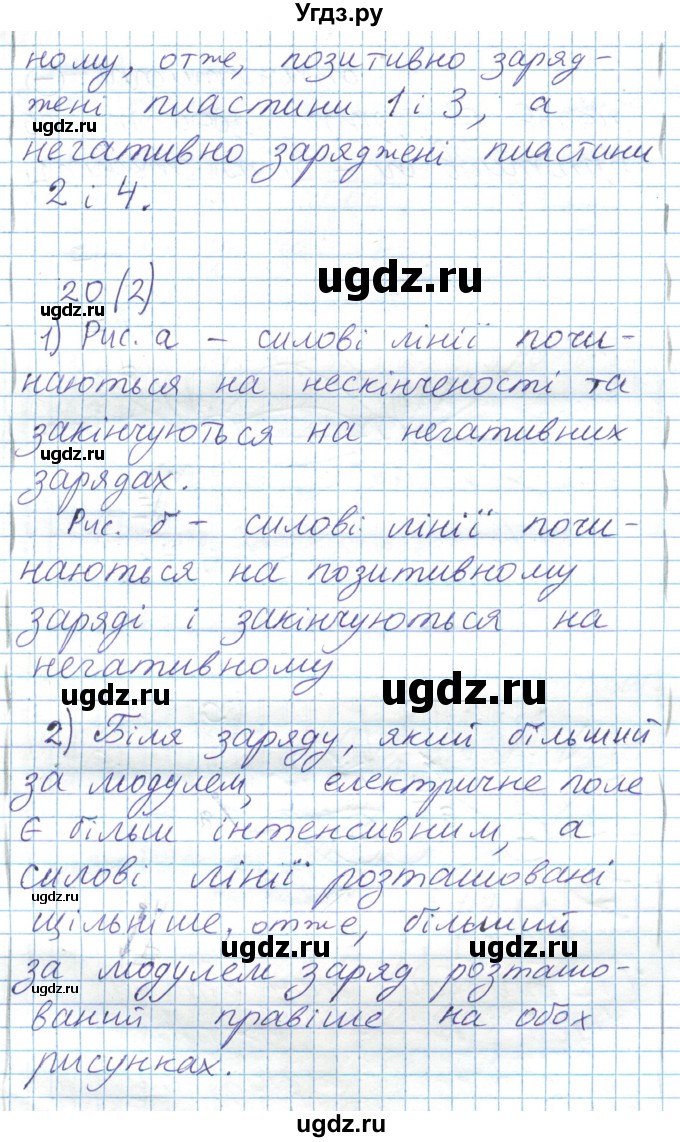 Угдз.ру
ному, отже, позитивно заряд-
жені пластини 1 і 3, а
ugdz.ru
негативно заряджені пластини
2 і 4.
ugdz.ru
20 (2)
ugdz.ru
1) Рис. а – силові лінії почи-
наються на нескінченості та
закінчуються на негативних
ugdz.ru
зарядах.
Рис. б – силові лінії почи-
наються на позитивному
заряді і закінчуються на
негативному
ugdz.ru
ugdz.ru
2) Біля заряду, який більший
за модулем, електричне поле
є більш інтенсивним, а
силові лінії розташовані
ugdz.ru
щільніше, отже, більший
ugdz.ru
ugdz.ru
за модулем заряд розташо-
ugdz.ru
ваний правіше на обох
рисунках.